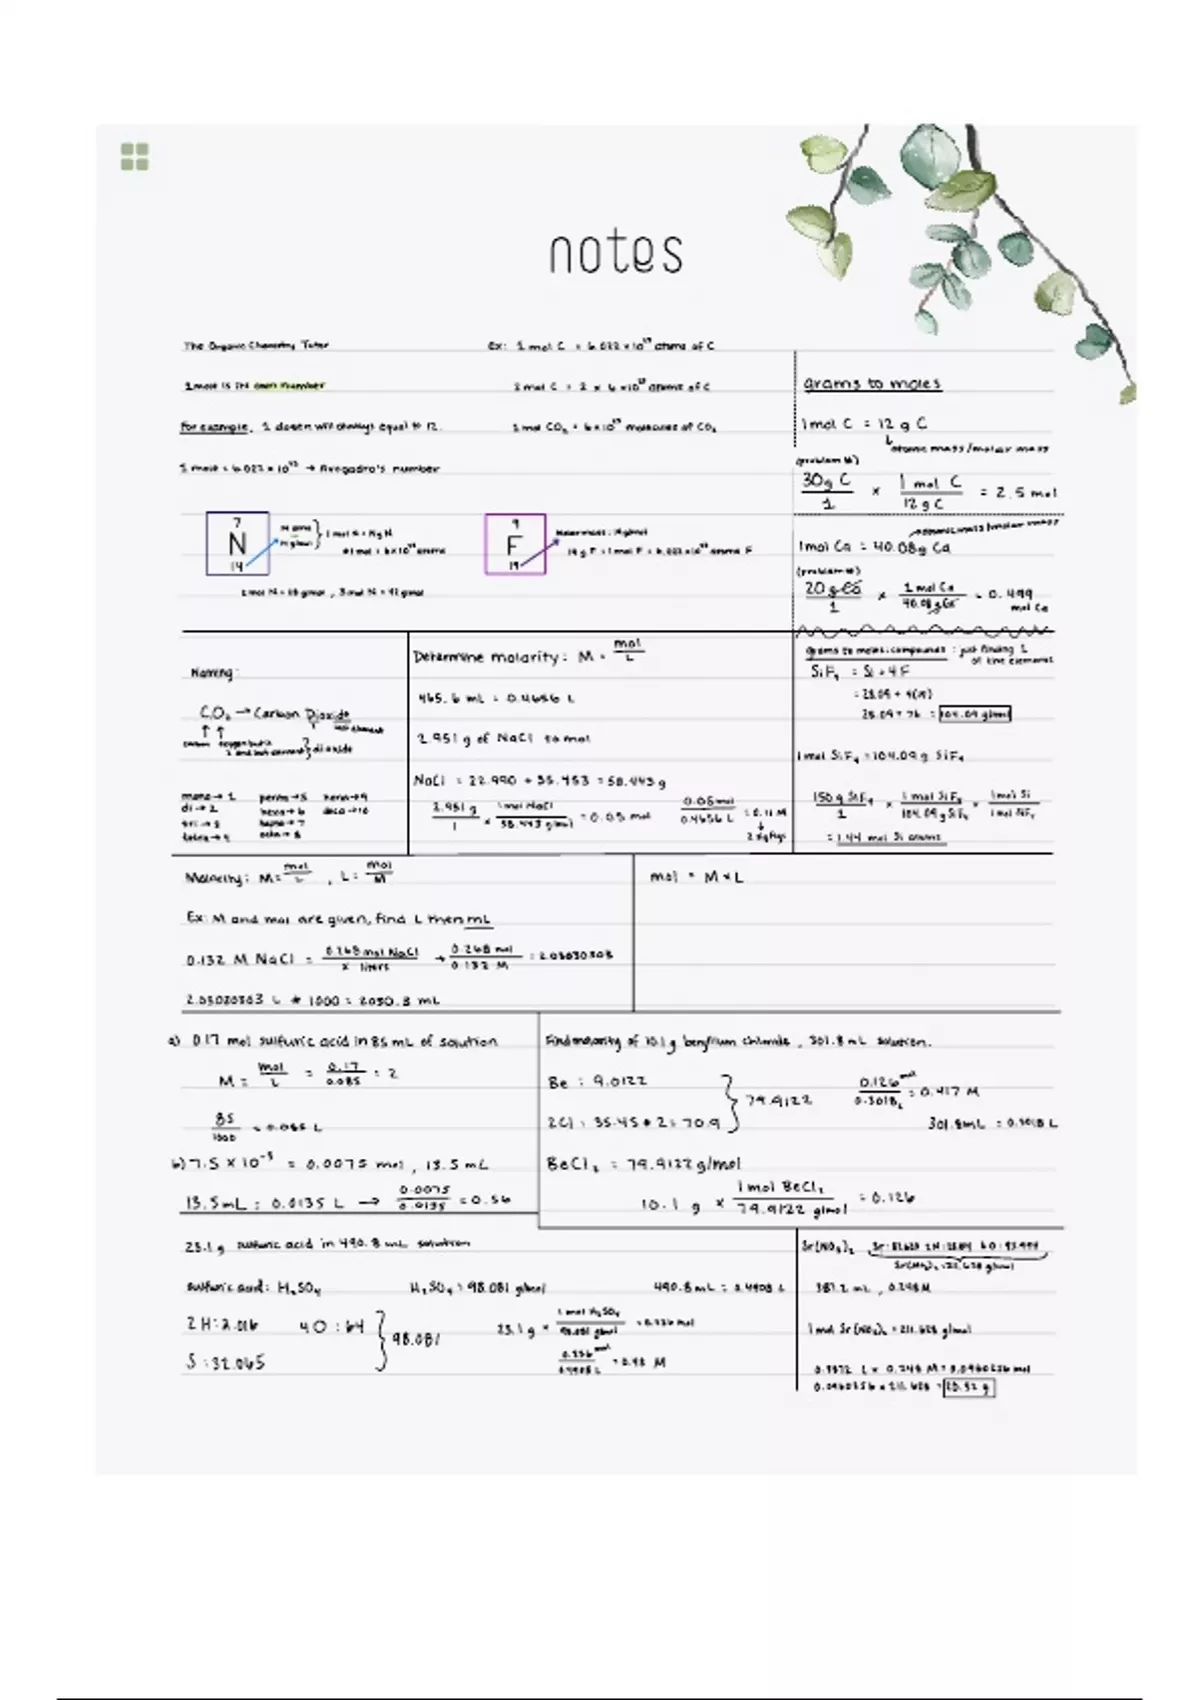 notes
The Organic Chemistry Tutor
1 mole is its own number
For example, 1 dozen will always equal to 12.
1 mole = 6.022 × 10²³ → Avogadro's number
Ex: 1 mol C = 6.022 × 10²³ atoms of C
2 mol C = 2 × 6 × 10²³ atoms of C
1 mol CO₂ = 6 × 10²³ molecules of CO₂
7
N
14
1 mol N = 14g N
9
F
19
Molar mass: 19g/mol
19 g F = 1 mol F = 6.022 × 10²³ atoms F
grams to moles
1 mol C = 12 g C
atomic mass/molar mass
(problem #)
30g C / 1 × 1 mol C / 12 g C = 2.5 mol
atomic mass/molar mass
1mol Ca = 40.08g Ca
(problem #)
20 g Ca / 1 × 1 mol Ca / 40.08g Ca = 0.499 mol Ca
Naming:
CO₂ → Carbon Dioxide
mono → 1
di → 2
tri → 3
tetra → 4
penta → 5
hexa → 6
hepta → 7
octa → 8
nona → 9
deca → 10
Determine molarity: M = mol / L
465.6 mL = 0.4656 L
2.951 g of NaCl to mol
NaCl = 22.990 + 35.453 = 58.443 g
2.951 g / 1 × 1 mol NaCl / 58.443 g/mol = 0.05 mol
0.05 mol / 0.4656 L = 0.11 M
2 sig figs
grams to moles: compounds: just finding 1 of the elements
SiF₄ = Si + 4F
= 28.09 + 4(19)
28.09 + 76 = 104.09 g/mol
1 mol SiF₄ = 104.09 g SiF₄
150 g SiF₄ / 1 × 1 mol SiF₄ / 104.09 g SiF₄ × 1 mol Si / 1 mol SiF₄
= 1.44 mol Si atoms
Molarity: M = mol / L , L = mol / M
Ex: M and mol are given, find L then mL
0.132 M NaCl = 0.268 mol NaCl / x liters → 0.268 mol / 0.132 M = 2.03030303
2.03030303 L * 1000 = 2030.3 mL
mol = M × L
a) 0.17 mol sulfuric acid in 85 mL of solution
M = mol / L = 0.17 / 0.085 = 2
85 / 1000 = 0.085 L
b) 7.5 × 10⁻³ = 0.0075 mol, 13.5 mL
13.5mL = 0.0135 L → 0.0075 / 0.0135 = 0.56
Find molarity of 10.1 g beryllium chloride, 301.8 mL solution.
Be : 9.0122
2Cl : 35.45 * 2 = 70.9
79.9122
0.126 mol / 0.3018 L = 0.417 M
301.8mL = 0.3018 L
BeCl₂ = 79.9122 g/mol
10.1 g × 1 mol BeCl₂ / 79.9122 g/mol = 0.126
23.1 g sulfuric acid in 490.8 mL solution
sulfuric acid: H₂SO₄
H₂SO₄ = 98.081 g/mol
490.8 mL = 0.4908 L
2 H: 2.016
4 O : 64
S : 32.065
98.081
23.1 g × 1 mol H₂SO₄ / 98.081 g/mol = 0.236 mol
0.236 mol / 0.4908 L = 0.48 M
Sr(NO₃)₂
387.2 mL, 0.248 M
1 mol Sr(NO₃)₂ = 211.628 g/mol
0.3872 L × 0.248 M = 0.0960256 mol
0.0960256 × 211.628 = 20.32 g